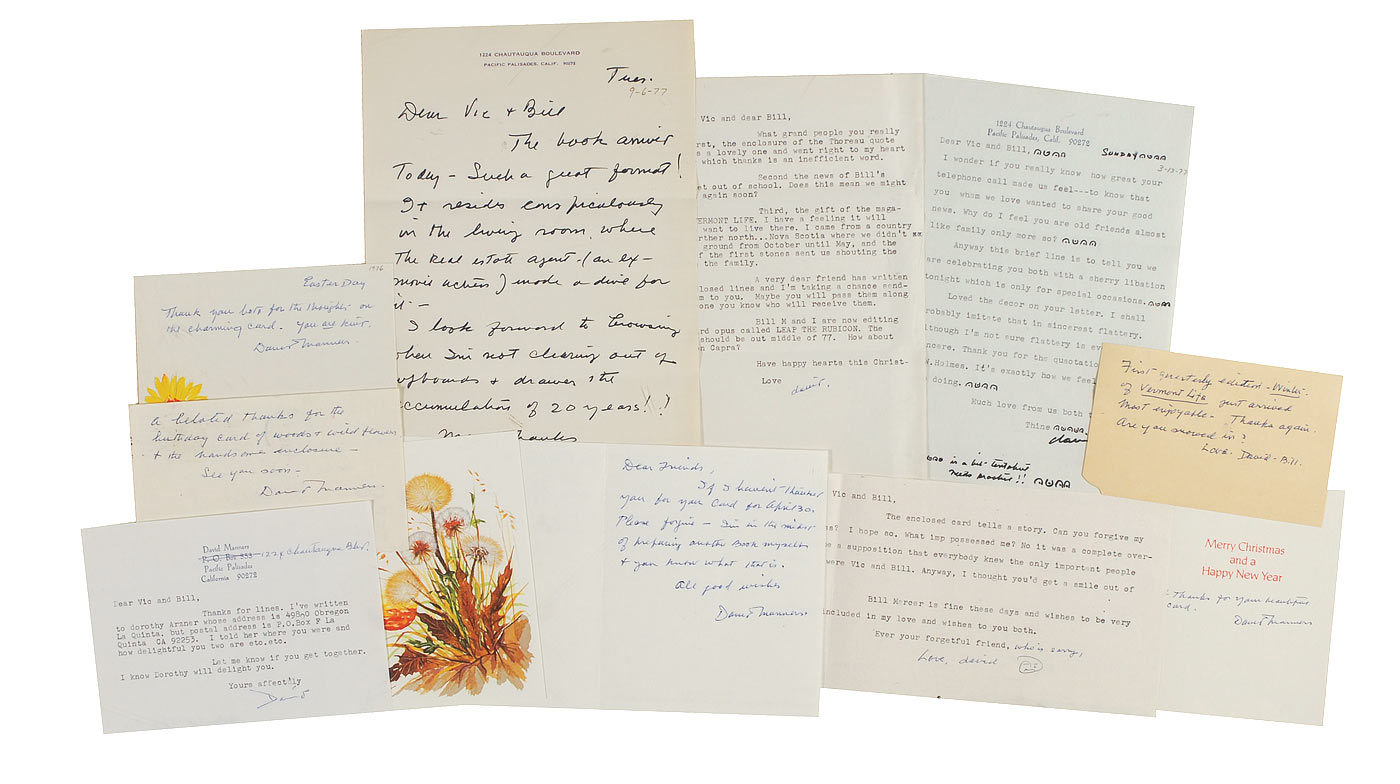 1224 CHAUTAUQUA BOULEVARD
PACIFIC PALISADES, CALIF. 90272
Tues.
9-6-77
Dear Vic + Bill
The book arrives
Today - Such a great format!
It resides conspicuously
in the living room, where
The real estate agent - (an ex-
movie actress) made a dive for
it -
I look forward to browsing
when I'm not clearing out of
cupboards + drawers the
accumulation of 20 years!!
Thanks
Vic and dear Bill,
What grand people you really
rst, the enclosure of the Thoreau quote
s a lovely one and went right to my heart
which thanks is an inefficient word.
Second the news of Bill's
et out of school. Does this mean we might
again soon?
Third, the gift of the maga-
VERMONT LIFE. I have a feeling it will
want to live there. I came from a country
rther north...Nova Scotia where we didn't
ground from October until May, and the
f the first stones sent us shouting the
the family.
A very dear friend has written
losed lines and I'm taking a chance send-
m to you. Maybe you will pass them along
one you know who will receive them.
Bill M and I are now editing
rd opus called LEAP THE RUBICON. The
should be out middle of 77. How about
n Capra?
Have happy hearts this Christ-
Love
david.
1224 Chautauqua Boulevard
Pacific Palisades, Calif. 90272
Dear Vic and Bill,
SUNDAY
3-13-77
I wonder if you really know how great your
telephone call made us feel---to know that
you whom we love wanted to share your good
news. Why do I feel you are old friends almost
like family only more so?
Anyway this brief line is to tell you we
are celebrating you both with a sherry libation
tonight which is only for special occasions.
Loved the decor on your letter. I shall
robably imitate that in sincerest flattery.
lthough I'm not sure flattery is ev
ncere. Thank you for the quotation
W.Holmes. It's exactly how we feel
doing.
Much love from us both t
Thine
needs practice!!
1976
Easter Day
Thank you both for the thoughts on
the charming card. You are kind.
David Manners
A belated thanks for the
birthday card of woods + wild flowers
+ the handsome enclosure -
See you soon -
David Manners
David Manners
P. O. Box 353 1224 Chautauqua Blvd.
Pacific Palisades
California 90272
Dear Vic and Bill,
Thanks for lines. I've written
to dorothy Arzner whose address is 49800 Obregon
La Quinta, but postal address is P.O.Box F La
Quinta CA 92253. I told her where you were and
how delightful you two are etc.etc.
Let me know if you get together.
I know Dorothy will delight you.
Yours affectlly
David
Dear Friends,
If I haven't thanked
you for your Card for April 30.
Please forgive - I'm in the midst
of preparing another Book myself
+ you know what that is.
All good wishes
David Manners
Vic and Bill,
The enclosed card tells a story. Can you forgive my
s? I hope so. What imp possessed me? No it was a complete over-
e a supposition that everybody knew the only important people
were Vic and Bill. Anyway, I thought you'd get a smile out of
Bill Mercer is fine these days and wishes to be very
included in my love and wishes to you both.
Ever your forgetful friend, who's sorry,
Love, david
First quarterly edition - Winter -
of Vermont Life just arrived
Most enjoyable - Thanks again.
Are you snowed in?
Love. David - Bill.
Merry Christmas
and a
Happy New Year
Thanks for your beautiful
card.
David Manners